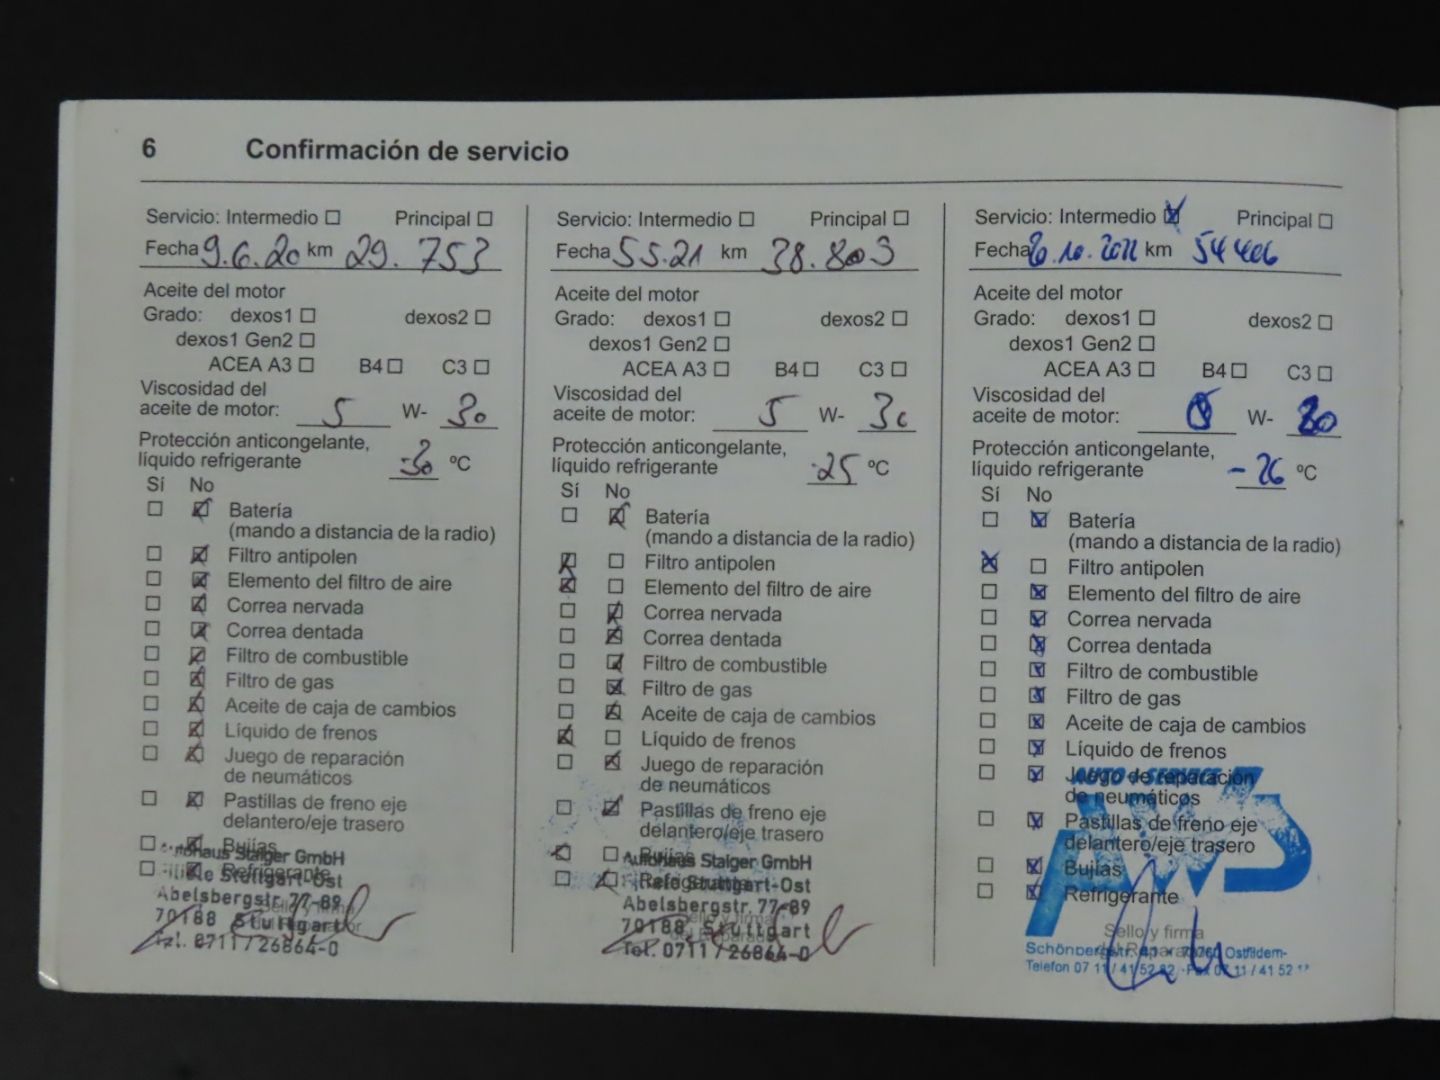 6 Confirmación de servicio
Servicio: Intermedio ☐ Principal ☐
Fecha 9.6.20 km 29.753
Aceite del motor
Grado: dexos1 ☐ dexos2 ☐
dexos1 Gen2 ☐
ACEA A3 ☐ B4 ☐ C3 ☐
Viscosidad del
aceite de motor: 5 W- 30
Protección anticongelante,
líquido refrigerante -30 ºC
Sí No
☐ ☒ Batería
(mando a distancia de la radio)
☐ ☒ Filtro antipolen
☐ ☒ Elemento del filtro de aire
☐ ☒ Correa nervada
☐ ☒ Correa dentada
☐ ☒ Filtro de combustible
☐ ☒ Filtro de gas
☐ ☒ Aceite de caja de cambios
☐ ☒ Líquido de frenos
☐ ☒ Juego de reparación
de neumáticos
☐ ☒ Pastillas de freno eje
delantero/eje trasero
☐ ☒ Bujías
☐ ☒ Refrigerante
Autohaus Staiger GmbH
Filiale Stuttgart-Ost
Abelsbergstr. 77-89
70188 Stuttgart
Tel. 0711 / 26864-0
Servicio: Intermedio ☐ Principal ☐
Fecha 5.5.21 km 38.803
Aceite del motor
Grado: dexos1 ☐ dexos2 ☐
dexos1 Gen2 ☐
ACEA A3 ☐ B4 ☐ C3 ☐
Viscosidad del
aceite de motor: 5 W- 30
Protección anticongelante,
líquido refrigerante -25 ºC
Sí No
☐ ☒ Batería
(mando a distancia de la radio)
☒ ☐ Filtro antipolen
☒ ☐ Elemento del filtro de aire
☐ ☒ Correa nervada
☐ ☒ Correa dentada
☐ ☒ Filtro de combustible
☐ ☒ Filtro de gas
☐ ☒ Aceite de caja de cambios
☒ ☐ Líquido de frenos
☐ ☒ Juego de reparación
de neumáticos
☐ ☒ Pastillas de freno eje
delantero/eje trasero
☒ ☐ Bujías
☐ ☒ Refrigerante
Autohaus Staiger GmbH
Filiale Stuttgart-Ost
Abelsbergstr. 77-89
70188 Stuttgart
Tel. 0711 / 26864-0
Servicio: Intermedio ☒ Principal ☐
Fecha .10.2022 km 54406
Aceite del motor
Grado: dexos1 ☐ dexos2 ☐
dexos1 Gen2 ☐
ACEA A3 ☐ B4 ☐ C3 ☐
Viscosidad del
aceite de motor: W-
Protección anticongelante,
líquido refrigerante -26 ºC
Sí No
☐ ☒ Batería
(mando a distancia de la radio)
☒ ☐ Filtro antipolen
☐ ☒ Elemento del filtro de aire
☐ ☒ Correa nervada
☐ ☒ Correa dentada
☐ ☒ Filtro de combustible
☐ ☒ Filtro de gas
☐ ☒ Aceite de caja de cambios
☐ ☒ Líquido de frenos
☐ ☒ Juego de reparación
de neumáticos
☐ ☒ Pastillas de freno eje
delantero/eje trasero
☐ ☒ Bujías
☐ ☒ Refrigerante
AUTO-SERVICE
Sello y firma
del Reparador
Schönbergstr. Ostfildern-
Telefon 07 11 / 41 52 · Fax 07 11 / 41 52